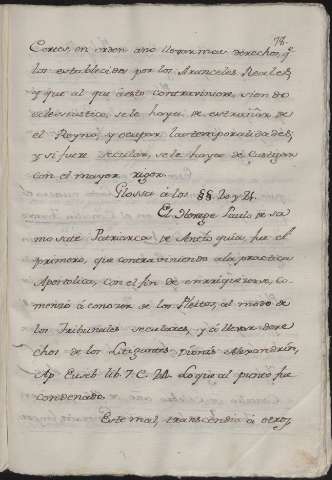 78.
Cortes, en orden ano llevar mas derechos, q.
los establecidos por los Aranceles Reales;
y que al que á esto contraviniere, siendo
eclesiastico, se le haya de estrañar de
el Reyno, y ocupar las temporalidades;
y si fuere secular, se le haya de castigar
con el mayor rigor.
Glossa á los §§ 20 y 21.
El Herege Paulo de Sa
mosate Patriarca de Antioquia, fue el
primero, que contraviniendo á la practica
Apostolica, con el fin de enrriquezerse, co
menzó á conozer de los Pleitos, al modo de
los Tribunales seculares, y á llevar dere
chos de los Litigantes. Dionis Alexandrin,
Ap. Euseb. lib. 7. C. 24. Lo que al punto fue
condenado.
Este mal, transcendió á otros,